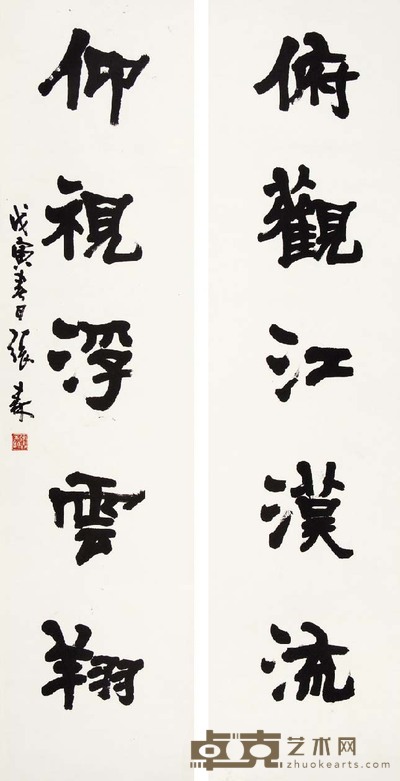 俯觀江漢流
仰視浮雲翔
戊寅春日張森
卓克艺术网
zhuokearts.com